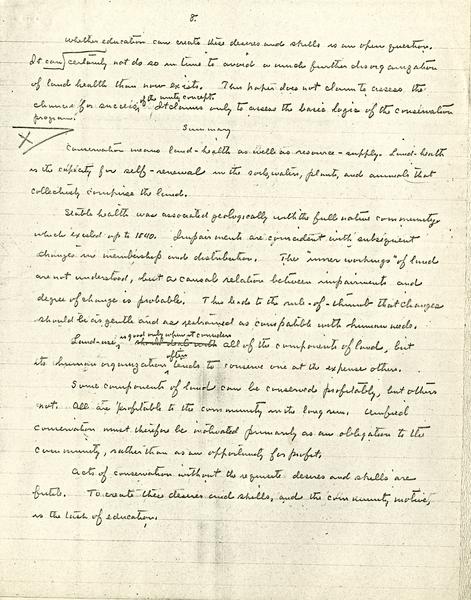 8.
Whether education can create these desires and skills is an open question.
It can certainly not do so in time to avoid a much further disorganization
of land health than now exists. This paper does not claim to assess the
chances for success of the unity concept. It claims only to assess the basic logic of the conservation
program.
X
Summary
Conservation means land-health as well as resource-supply. Land-health
is the capacity for self-renewal in the soils, water, plants, and animals that
collectively comprise the land.
Stable health was associated geologically with the full native community
which existed up to 1840. Impairments are coincident with subsequent
changes in membership and distribution. The "inner workings" of land
are not understood, but a causal relation between impairments and
degree of change is probable. This leads to the rule-of-thumb that changes
should be as gentle and as restrained as compatible with human needs.
Land-use is good only when it considers all of the components of land, but
its human organization often tends to conserve one at the expense others.
Some components of land can be conserved profitably, but others
not. All are profitable to the community in the long run. Unified
conservation must therefore be motivated primarily as an obligation to the
community, rather than as an opportunity for profit.
Acts of conservation without the requisite desires and skills are
futile. To create these desires and skills, and the community motive,
is the task of education.